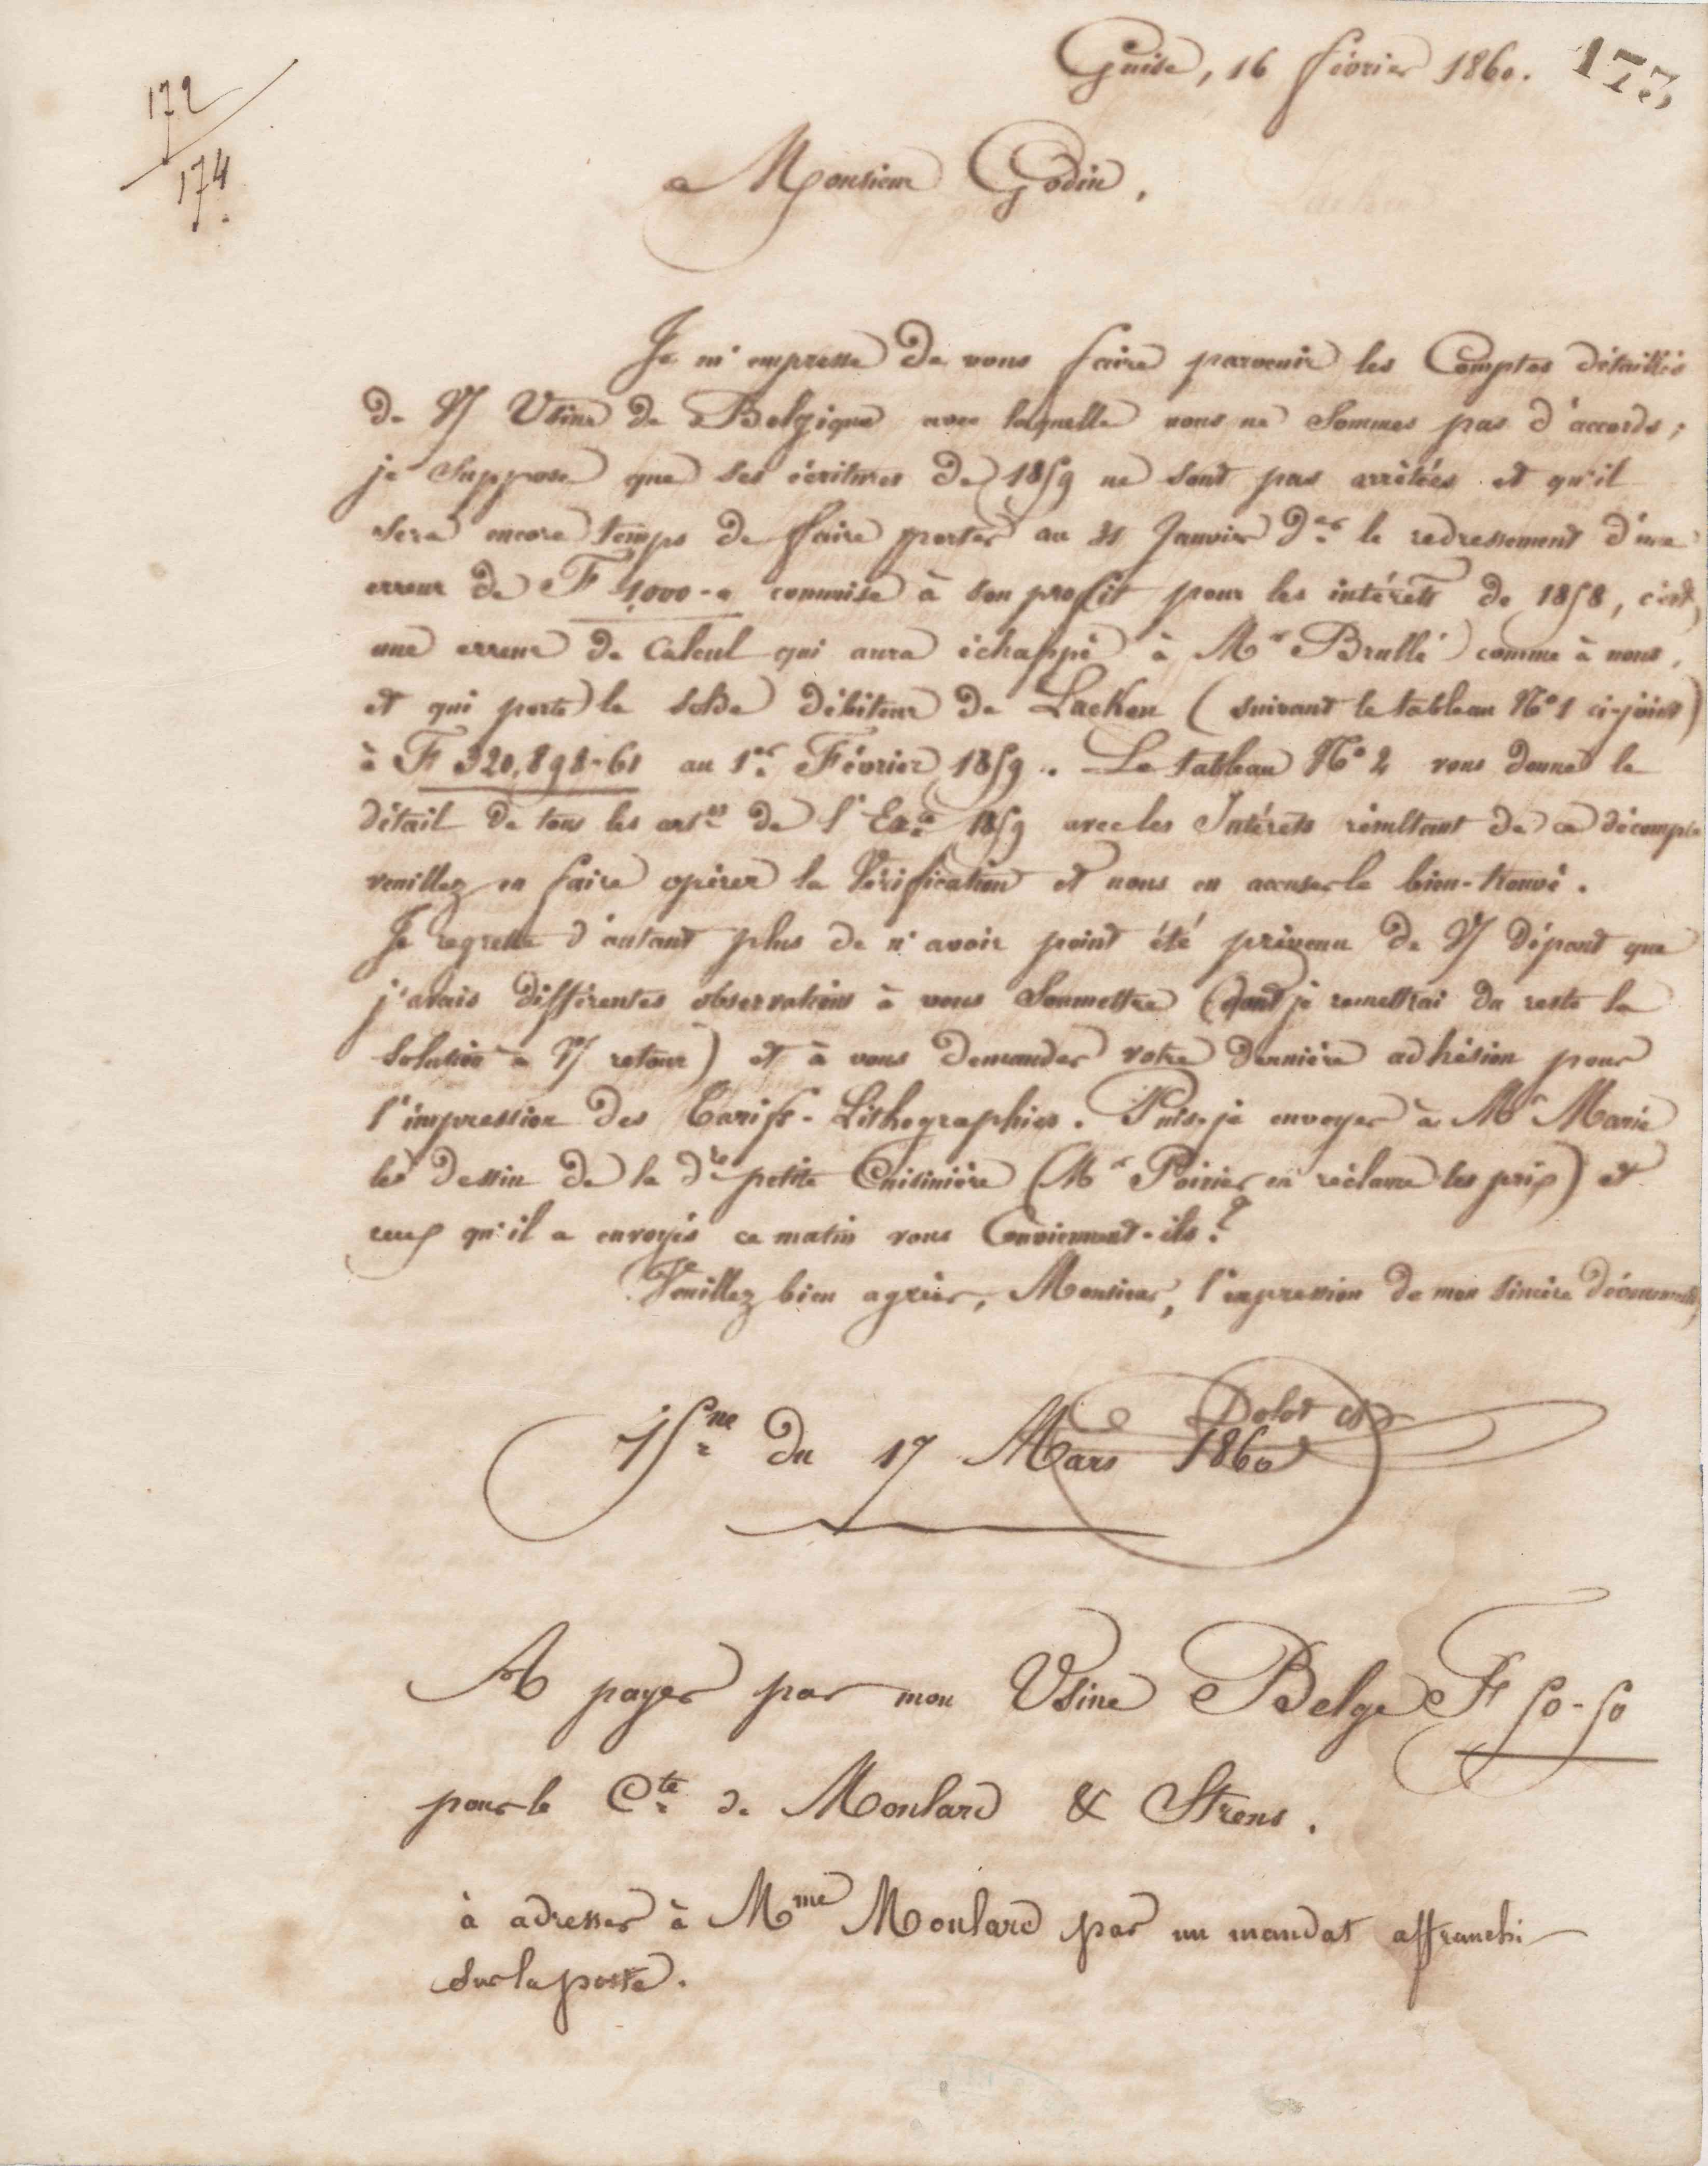 Guise, 16 février 1860.
173
172
174.
Monsieur Godin,
Je m'empresse de vous faire parvenir les Comptes détaillés
de V/ Usine de Belgique avec laquelle nous ne sommes pas d'accords ;
je suppose que ses écritures de 1859 ne sont pas arrêtées et qu'il
sera encore temps de faire porter au 31 Janvier der le redressement d'une
erreur de F 1,000-" commise à son profit pour les intérêts de 1858, c'est
une erreur de Calcul qui aura échappé à Mr Brullé comme à nous,
et qui porte le solde débiteur de Lacken (suivant le tableau No 1 ci-joint)
à F 320,898-61 au 1er Février 1859. Le tableau No 2 vous donne le
détail de tous les artes de l'Exce 1859 avec les Intérêts résultant de ce décompte
veuillez en faire opérer la Vérification et nous en accuser le bien-trouvé.
Je regrette d'autant plus de n'avoir point été prévenu de V/ départ que
j'avais différentes observations à vous Soumettre (dont je remettrai du reste la
solution à V/ retour) et à vous demander votre dernière adhésion pour
l'impression des Tarifs-Lithographies. Puis-je envoyer à Mr Marie
le dessin de la dre petite Cuisinière (Mr Poirier en réclame les prix) et
ceux qu'il a envoyés ce matin vous Conviennent-ils ?
Veuillez bien agréer, Monsieur, l'expression de mon sincère dévouement,
Dolot
15ne du 17 Mars 1860
A payer par mon Usine Belge F 50-50
pour le Cte de Moulard & Strens.
à adresser à Mme Moulard par un mandat affranchi
sur la poste.